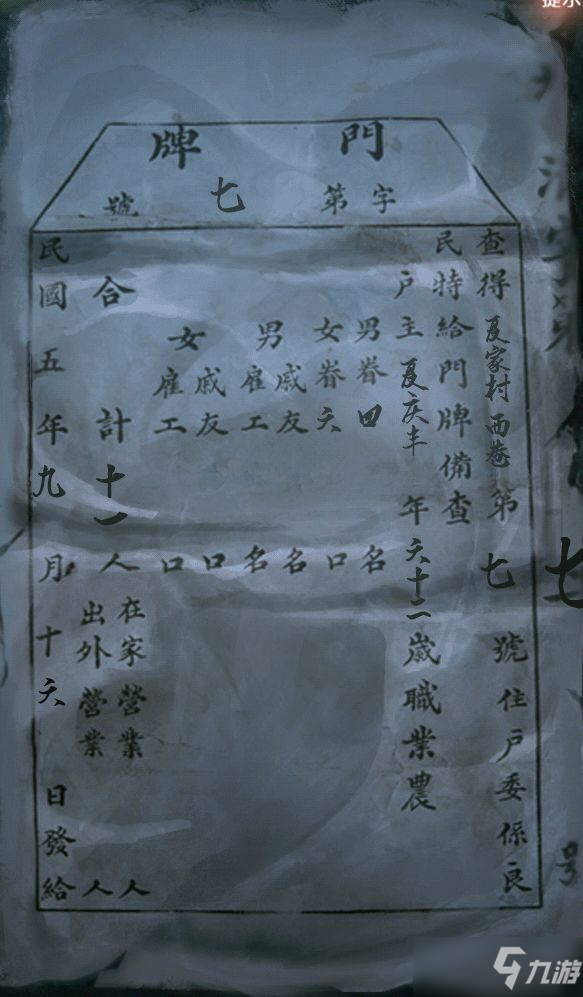 門牌
字第七號
查得夏家村西巷第七號住戶委係良
民特給門牌備查
戶主夏庆丰年六十二歲職業農
男眷四名
女眷六口
男
戚友名
雇工名
女
戚友口
雇工口
合計十一人
在家營業人
出外營業人
民國五年九月十六日發給
七号
提示
九游